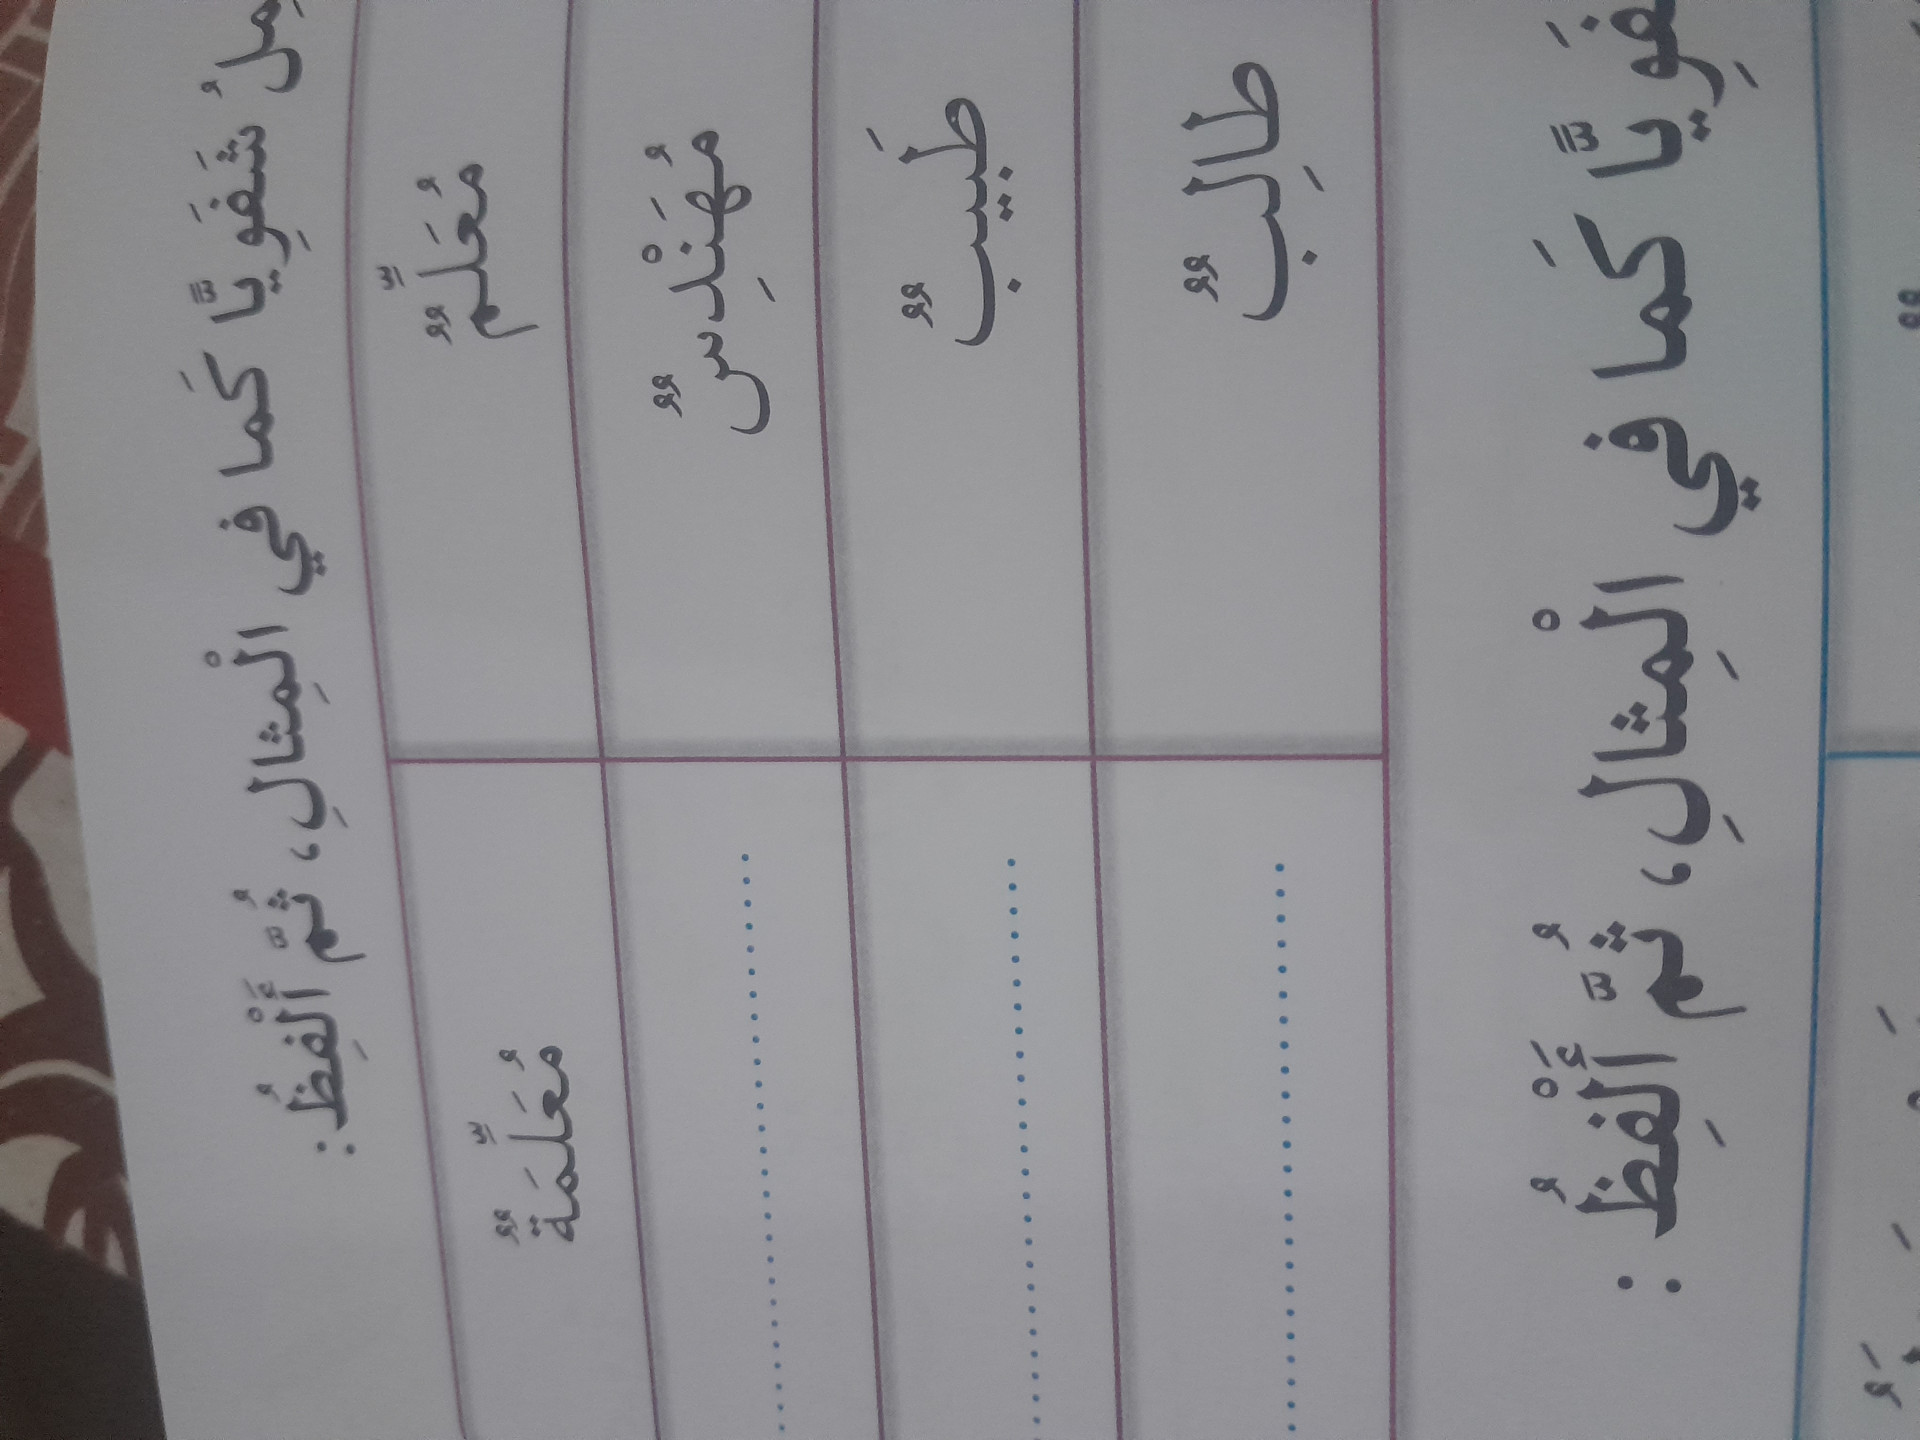 شَفَوِيًّا كَما في الْمِثالِ، ثُمَّ أَلْفِظُ:
مُعَلِّمٌ مُعَلِّمَةٌ
مُهَنْدِسٌ ..........................
طَبيبٌ ..........................
طالِبٌ ..........................
كَما في الْمِثالِ، ثُمَّ أَلْفِظُ: